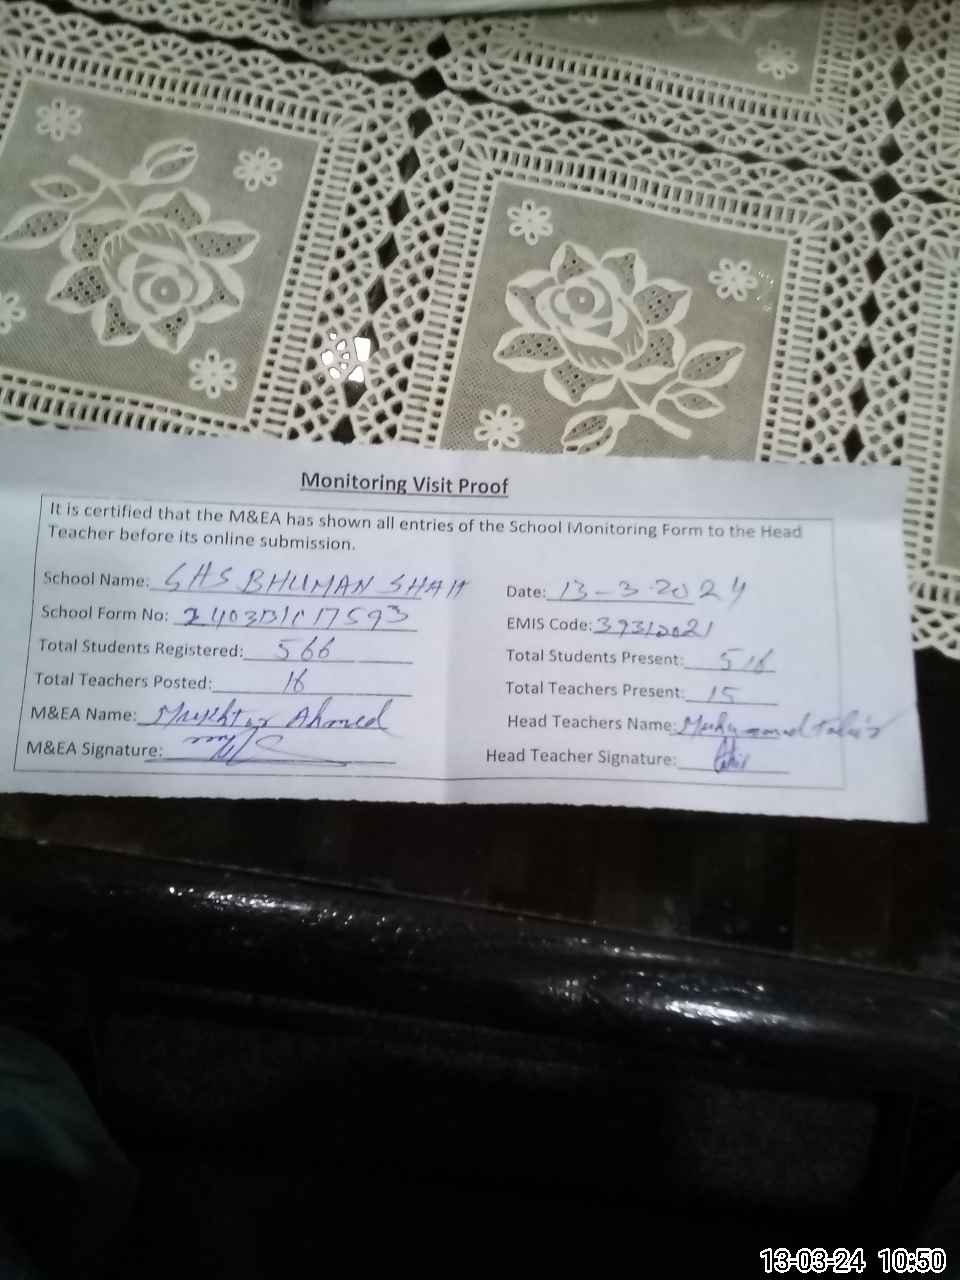 Monitoring Visit Proof
It is certified that the M&EA has shown all entries of the School Monitoring Form to the Head
Teacher before its online submission.
School Name: GHS BHUMAN SHAH
Date: 13-3-2024
School Form No:
EMIS Code: 39312021
Total Students Registered: 566
Total Students Present: 516
Total Teachers Posted: 16
Total Teachers Present: 15
M&EA Name: Mukhtar Ahmed
Head Teachers Name: Muhammad Tahir
M&EA Signature:
Head Teacher Signature:
13-03-24 10:50